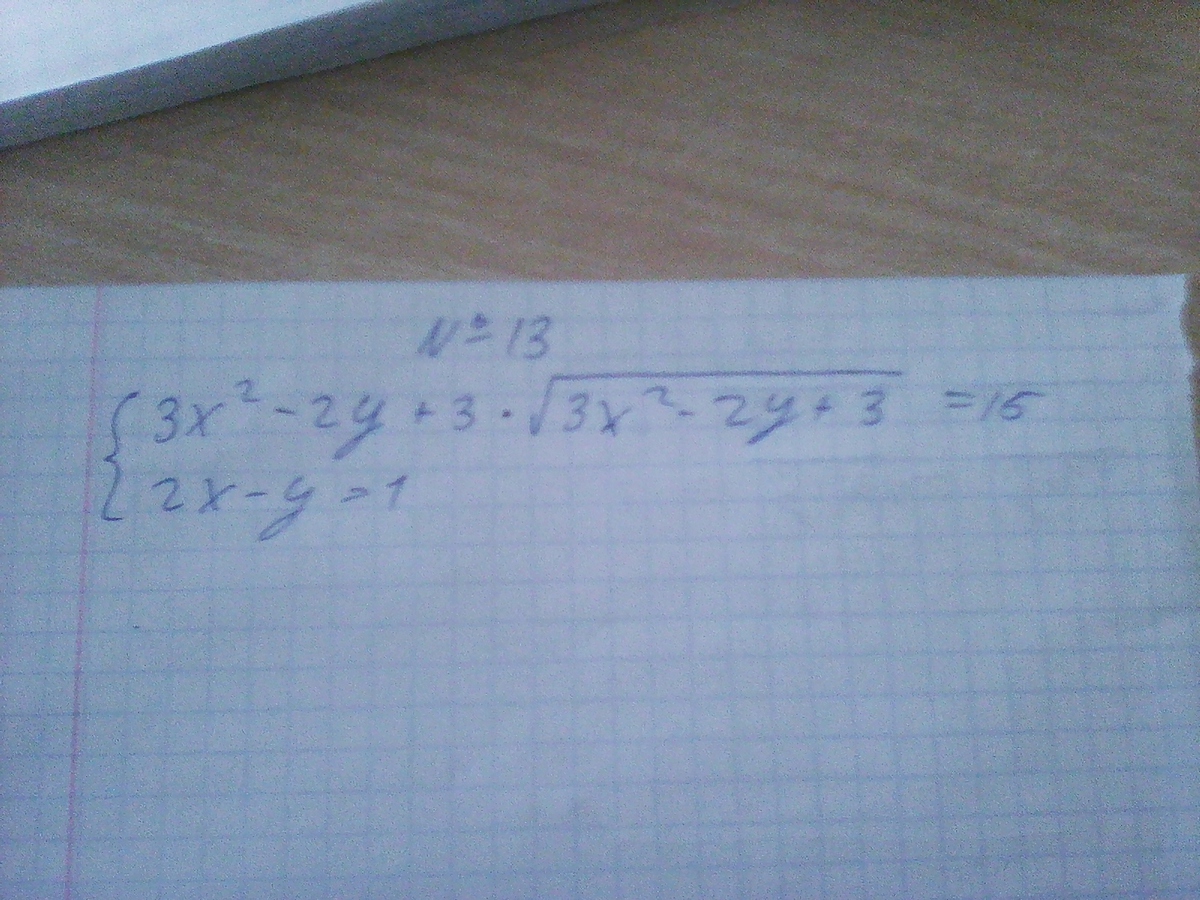 №13
3x² - 2y + 3 · √(3x² - 2y + 3) = 15
2x - y = 1